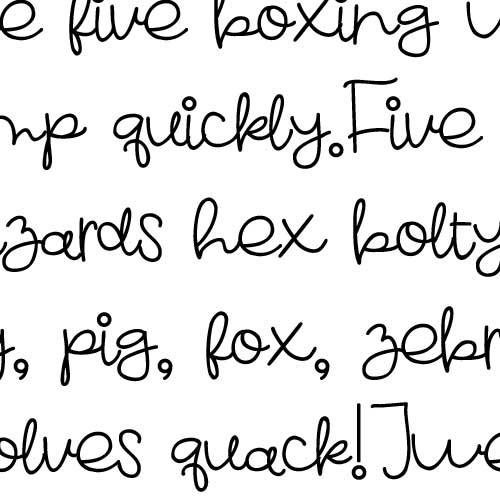 e five boxing w
mp quickly.Five
izards hex bolty
y, pig, fox, zebr
olves quack!Twe